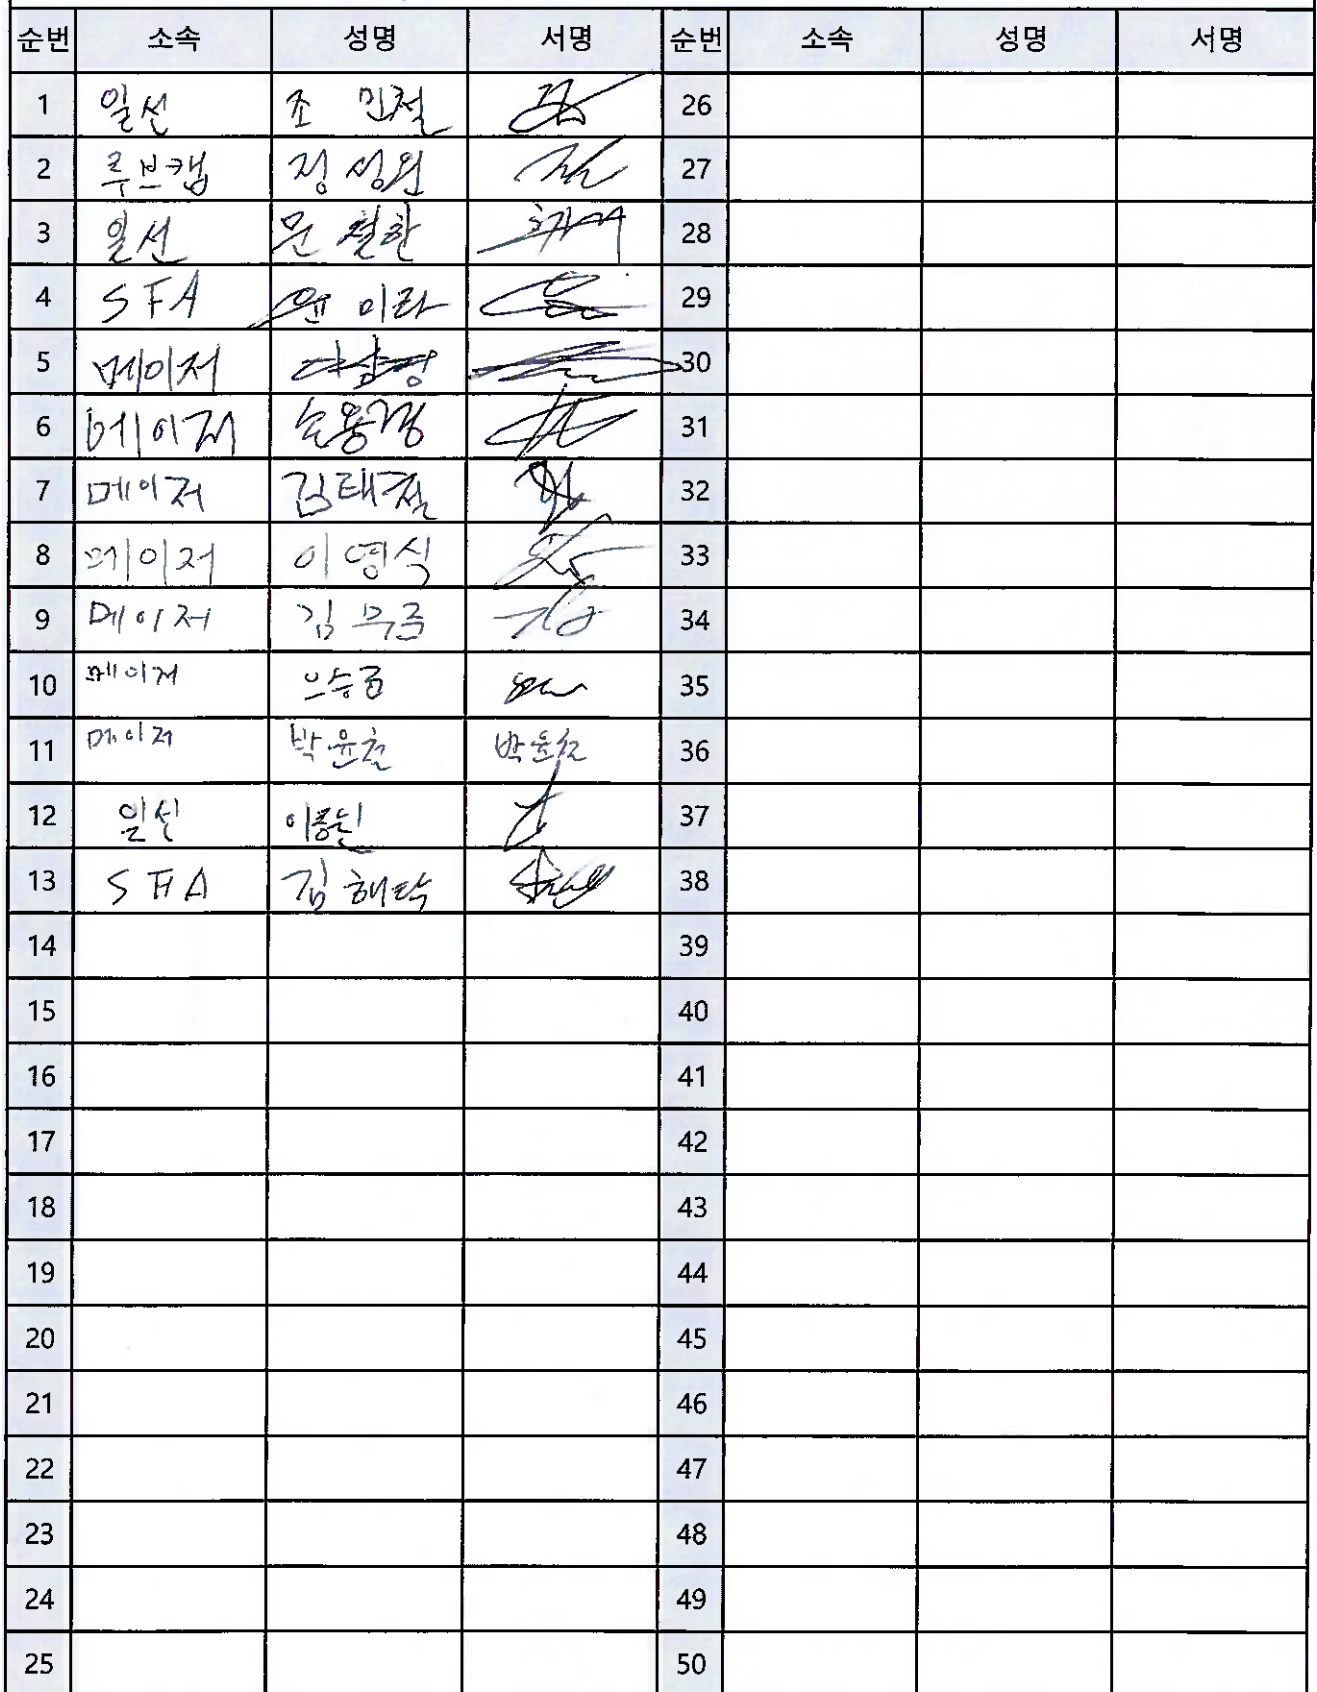 순번 소속 성명 서명 순번 소속 성명 서명
1 일선 조 민철 26
2 루브캡 정성원 27
3 일선 문철환 28
4 SFA 윤이라 29
5 메이저 30
6 메이저 31
7 메이저 김태철 32
8 메이저 이영식 33
9 메이저 김무준 34
10 메이저 35
11 메이저 박윤철 박윤철 36
12 일선 37
13 SFA 김해탁 38
14 39
15 40
16 41
17 42
18 43
19 44
20 45
21 46
22 47
23 48
24 49
25 50